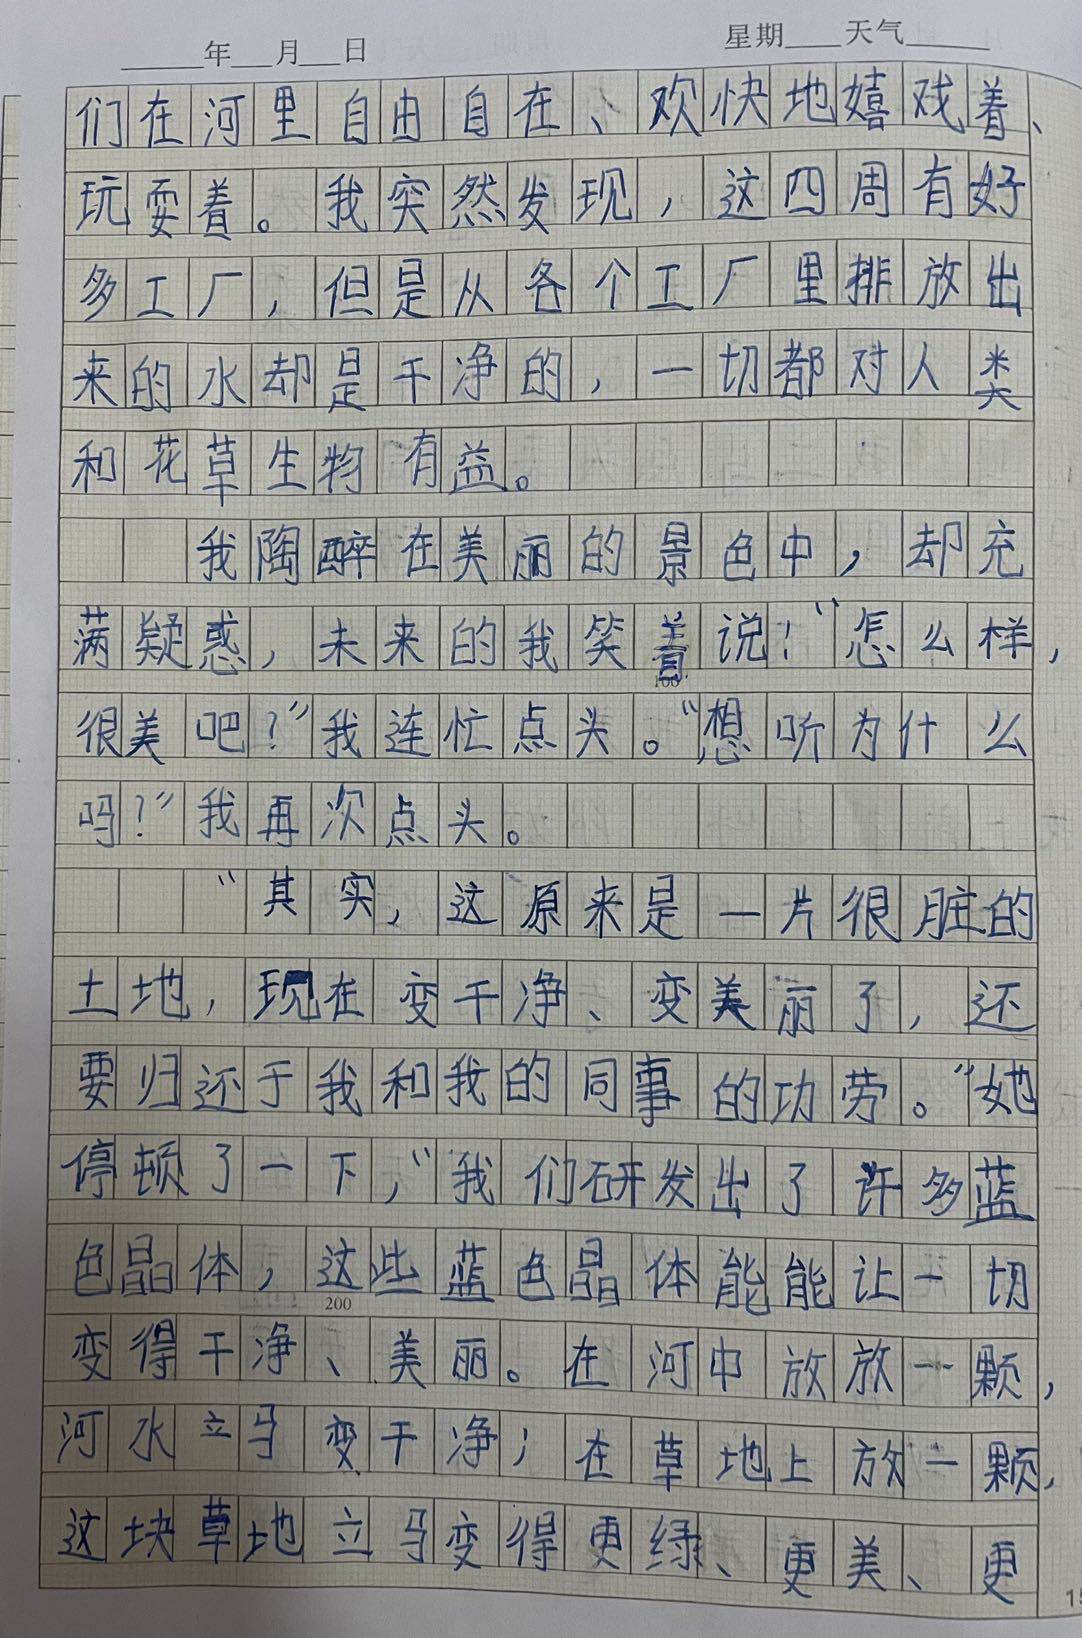 年 月 日 星期 天气
们在河里自由自在、欢快地嬉戏着、
玩耍着。我突然发现，这四周有好
多工厂，但是从各个工厂里排放出
来的水却是干净的，一切都对人类
和花草生物有益。
我陶醉在美丽的景色中，却充
满疑惑，未来的我笑着说：“怎么样，
100
很美吧？”我连忙点头。“想听为什么
吗？”我再次点头。
“其实，这原来是一片很脏的
土地，现在变干净、变美丽了，还
要归还于我和我的同事的功劳。”她
停顿了一下，“我们研发出了许多蓝
色晶体，这些蓝色晶体能能让一切
200
变得干净、美丽。在河中放放一颗，
河水立马变干净；在草地上放一颗，
这块草地立马变得更绿、更美、更
15